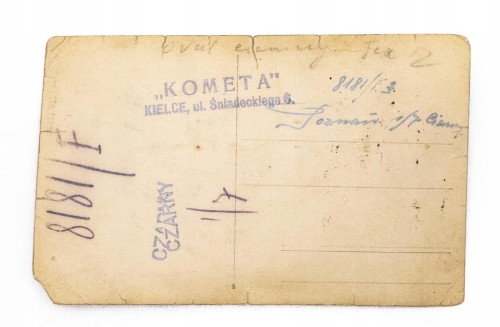 „KOMETA"
KIELCE, ul. Śniadeckiego 6.
8181/I
Poznań 1/7
8181/I
CZARNY
CZARNY
1/7